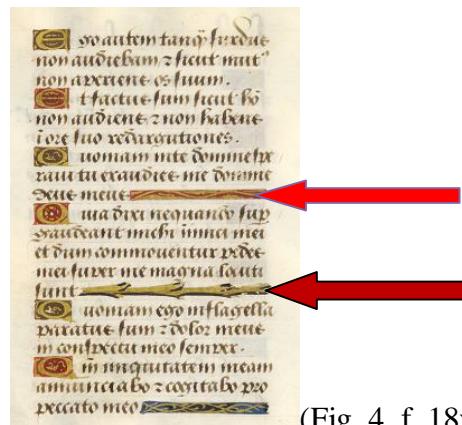 Ego autem tanq̃ surdus
non audiebam ⁊ sicut mut⁹
non aperiens os suum.
Et factus sum sicut hõ
non audiens ⁊ non habens
ĩ ore suo redargutiones.
Quoniam in te domine spe
raui tu exaudies me domine
deus meus
Quia dixi nequando sup̃
gaudeant michi inimici mei
et dum commouentur pedes
mei super me magna locuti
sunt
Quoniam ego in flagella
paratus sum ⁊ dolor meus
in conspectu meo semper.
iniquitatem meam
annunciabo ⁊ cogitabo pro
peccato meo
(Fig. 4 f. 18